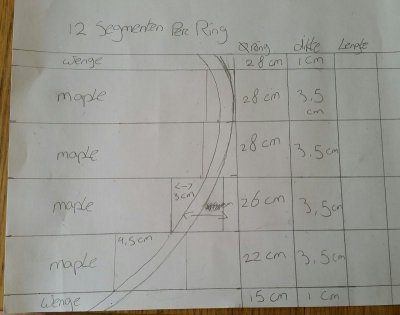 12 Segmenten Per Ring
Ø ring dikte Lengte
Wenge 28 cm 1 cm
maple 28 cm 3,5 cm
maple 28 cm 3,5 cm
maple <-> 3 cm 26 cm 3,5 cm
4,5 cm
maple 22 cm 3,5 cm
Wenge 15 cm 1 cm